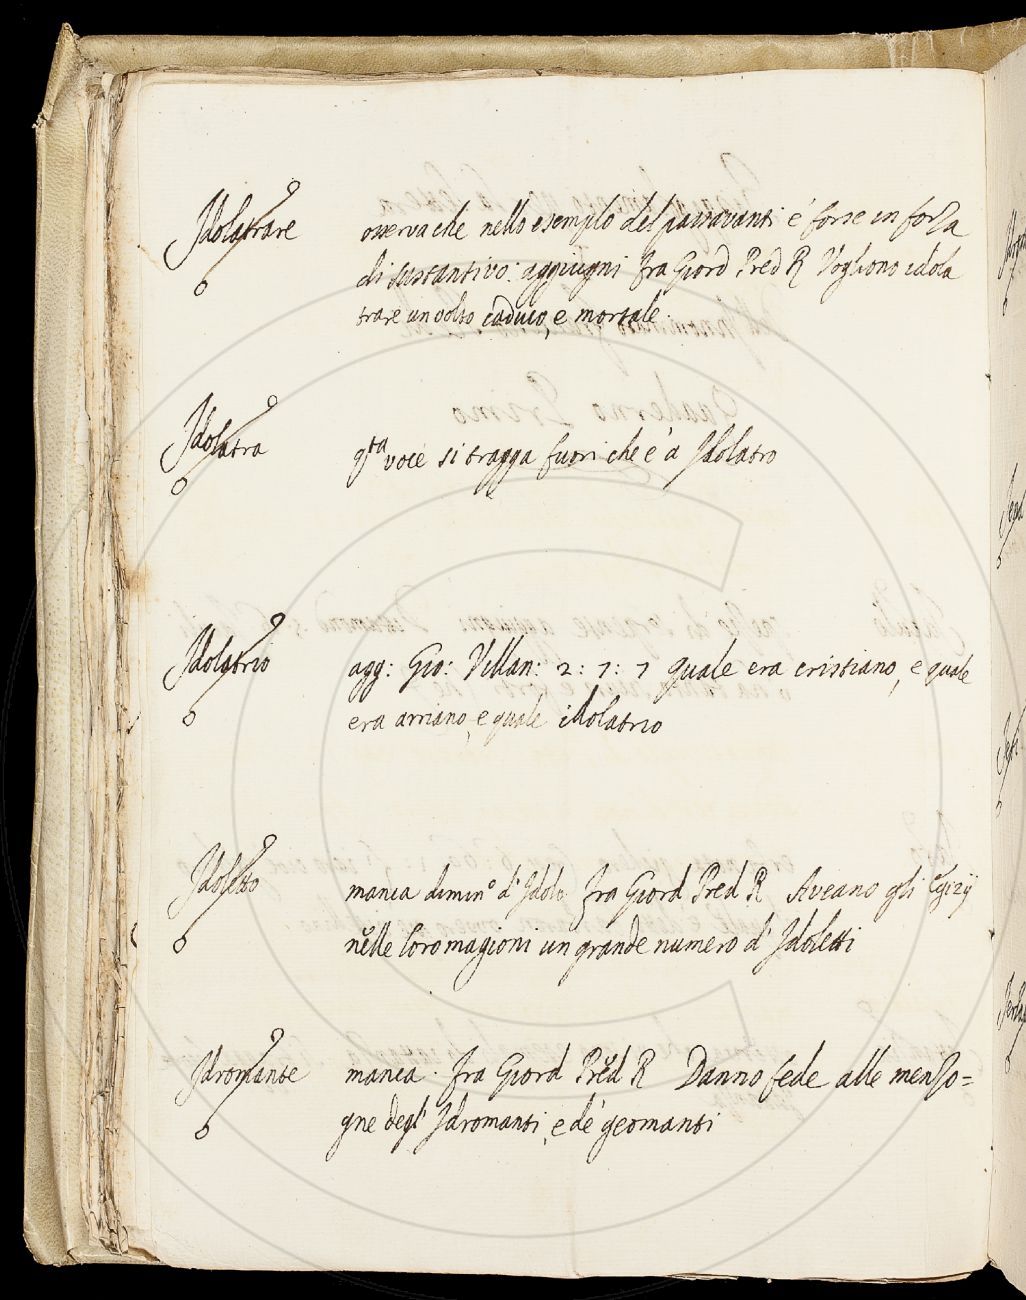 Idolatrare osserva che nello esempio del passavanti é forse in forza
di sustantivo: aggiugni fra Giord Pred R Vogliono idola
trare un volto caduco, e mortale.
Idolatra qta voce si tragga fuori che è a Idolatro
Idolatrio agg: Gio: Villan: 2: 7: 7 quale era cristiano, e quale
era arriano, e quale idolatrio
Idoletto manca dimino d'Idolo fra Giord Pred R Aveano gli Egizij
nelle loro magioni un grande numero d'Idoletti
Idromante manca. fra Giord Pred R Danno fede alle menzo=
gne degl'Idromanti, e de' geomanti